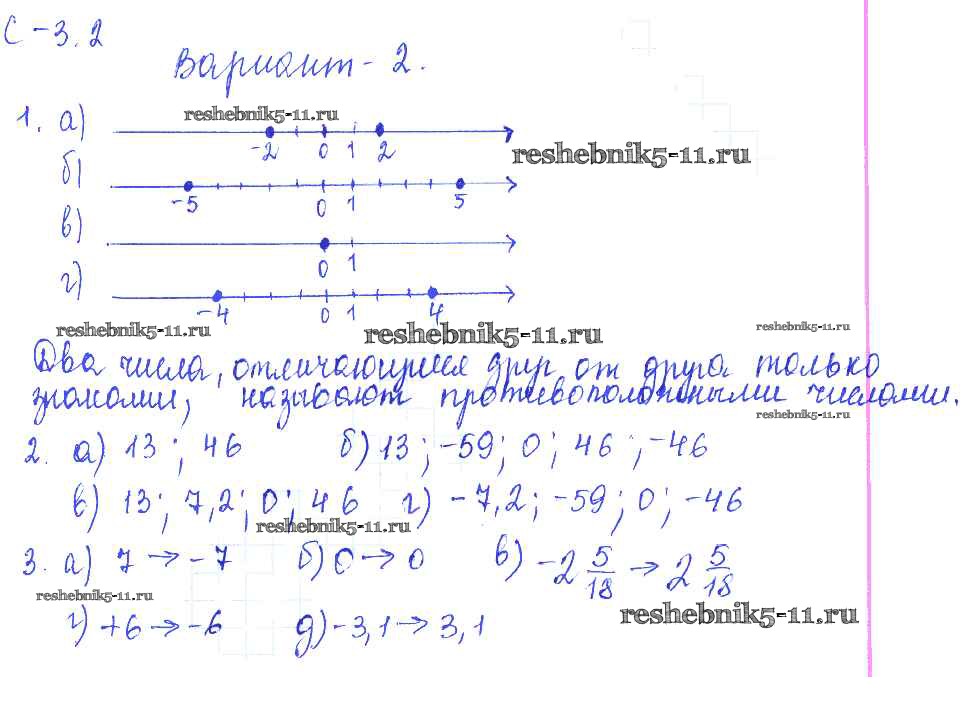 С-3.2
Вариант-2.
1. а)
reshebnik5-11.ru
-2 0 1 2
reshebnik5-11.ru
б)
-5 0 1 5
в)
0 1
г)
-4 0 1 4
reshebnik5-11.ru
reshebnik5-11.ru
reshebnik5-11.ru
Два числа, отличающиеся друг от друга только
знаками, называют противоположными числами.
reshebnik5-11.ru
2. а) 13; 46 б) 13; -59; 0; 46; -46
в) 13; 7,2; 0; 46 г) -7,2; -59; 0; -46
reshebnik5-11.ru
3. а) 7 → -7 б) 0 → 0 в) -2 5/18 → 2 5/18
reshebnik5-11.ru
reshebnik5-11.ru
г) +6 → -6 д) -3,1 → 3,1